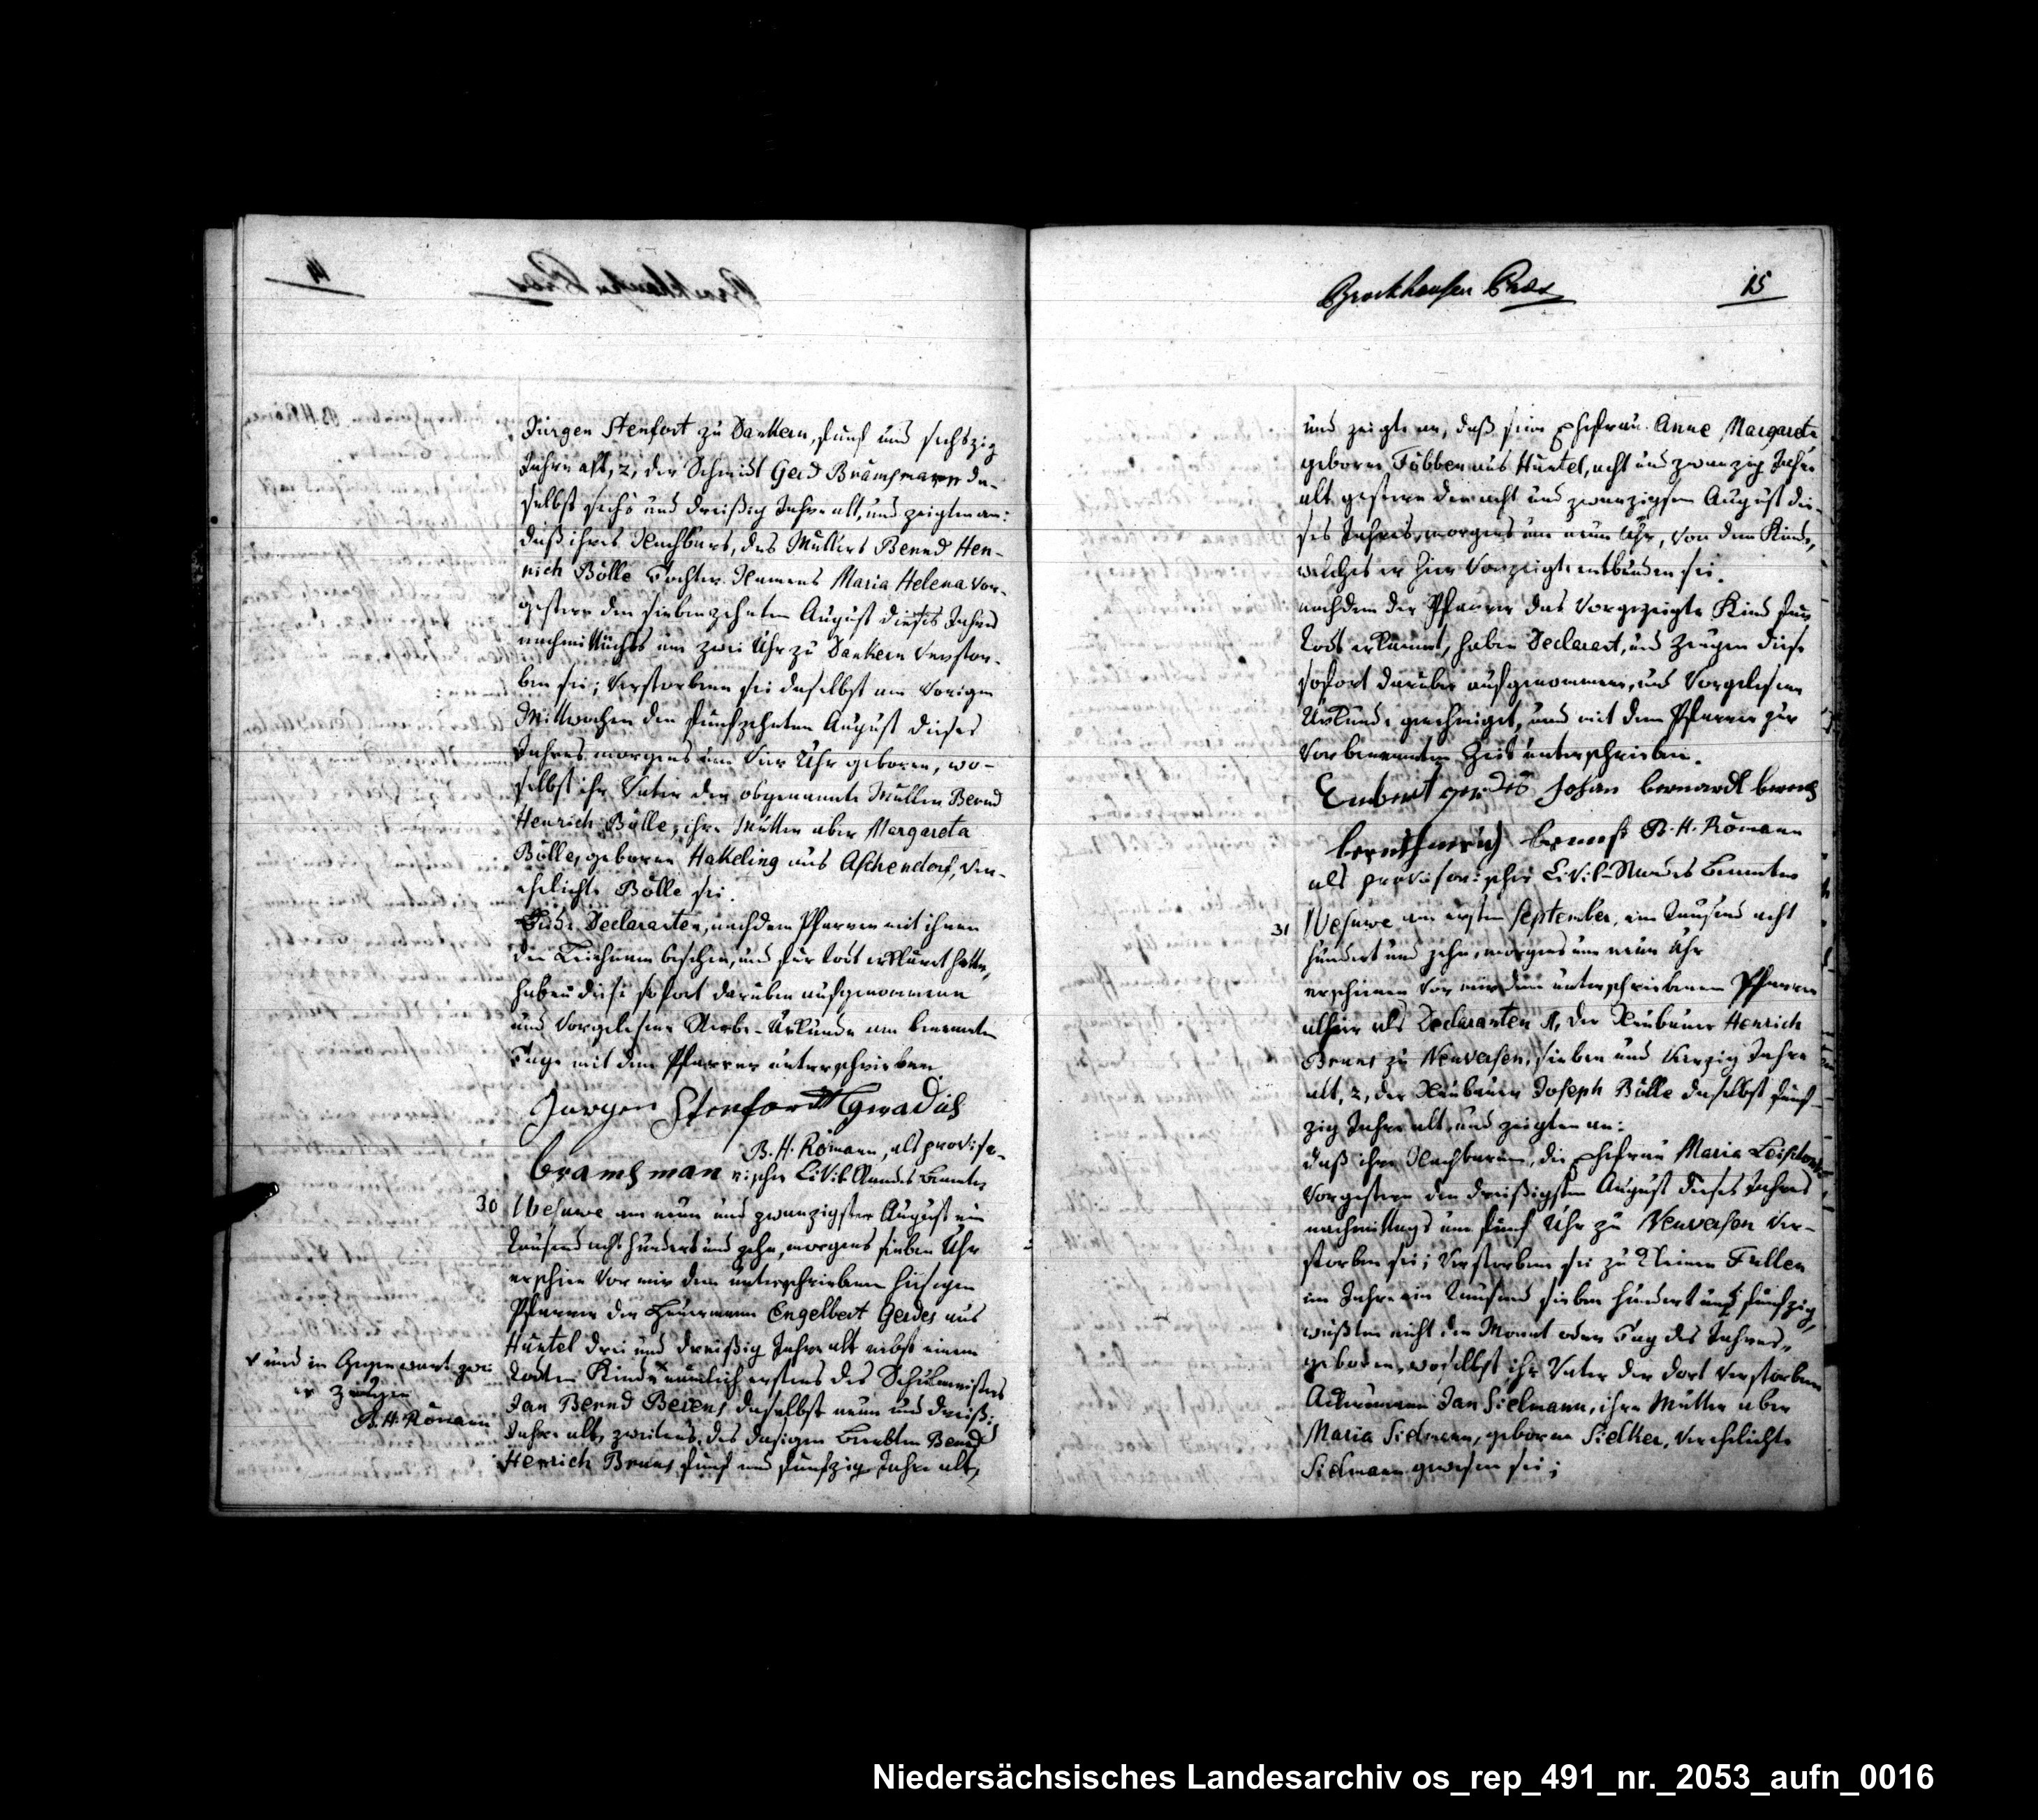 Jürgen Stenfort zu Dankern, fünf und sechszig
Jahre alt, 2, der Schmidt Gerd Bramsmann da-
selbst sechs und dreißig Jahre alt, und zeigten an:
daß ihres Nachbars, des Müllers Bernd Hen-
rich Bölle Tochter Namens Maria Helena vor-
gestern den siebenzehnten August dieses Jahrs
nachmittachs um zwei Uhr zu Dankern verstor-
ben sei; Verstorbene sei daselbst am vorigen
Mittwochen den fünfzehnten August dieses
Jahres morgens um vier Uhr geboren, wo-
selbst ihr Vater der obgenannte Müller Bernd
Henrich Bölle, ihre Mutter aber Margareta
Bölle, geborne Hakeling aus Aschendorf, ver-
ehelichte Bölle sei.
Declaranten, nachdem Pfarrer mit ihnen
den Leichnam besehen, und für todt erkläret hatte,
haben diese sofort darüber aufgenommene
und vorgelesene Sterbe-Urkunde am benannten
Tage mit dem Pfarrer unterschrieben
Jurgen Stenfordt Gerad
B. H. Römann, als proviso-
bramsman rischer Civil-Standes Beamter
30 Wesuwe am neun und zwanzigsten August ein
tausend acht hundert und zehn, morgens sieben Uhr
erschien vor mir dem unterschriebenen hiesigen
Pfarrer der Heuermann Engelbert Gerdes aus
Huntel drei und dreißig Jahre alt nebst einem
todten Kinde nämlich erstens des Schulmeisters
Jan Bernd Berens daselbst neun und dreißig
Jahre alt, zweitens, des dasigen Beerbten Bernd
Henrich Bruns fünf und fünfzig Jahre alt,
und in Gegenwart zwei-
er Zeugen
B. H. Römann
Brockhausen Präs
15
und zeigte an, daß seine Ehefrau Anne Margareta
geborne Tübben aus Huntel, acht und zwanzig Jahre
alt gestern den acht und zwanzigsten August die-
ses Jahres, morgens um neun Uhr, von dem Kinde,
welches er hier vorzeigt entbunden sei.
nachdem der Pfarrer das vorgezeigte Kind für
todt erkannt, haben Declarant, und Zeugen diese
sofort darüber aufgenommene, und vorgelesene
Urkunde genehmiget, und mit dem Pfarrer zur
vorbenannten Zeit unterschrieben.
Enbert gerdes Johan bernardt berens
bernt henrich bruns B. H. Römann
als provisorischer Civil-Standes Beamter
31 Wesuwe am ersten September, ein tausend acht
hundert und zehn, morgens um neun Uhr
erschienen vor mir dem unterschriebenen Pfarrer
alhier als Declaranten 1, der Neubauer Henrich
Bruns zu Neuversen, sieben und vierzig Jahre
alt, 2, der Neubauer Joseph Bölle daselbst fünf-
zig Jahre alt, und zeigten an:
daß ihre Nachbarin, die Ehefrau Maria
vorgestern den dreißigsten August dieses Jahres
nachmittags um fünf Uhr zu Neuversen ver-
storben sei; Verstorbene sei zu Kleinen Fullen
im Jahre ein tausend sieben hundert und fünfzig,
wußten nicht den Monat oder Tag des Jahres,
geboren, woselbst ihr Vater der dort verstorbene
Ackermann Jan Sielmann, ihre Mutter aber
Maria Sielmann, geborne Sielker, verehelichte
Sielmann gewesen sei;
Niedersächsisches Landesarchiv os_rep_491_nr._2053_aufn_0016